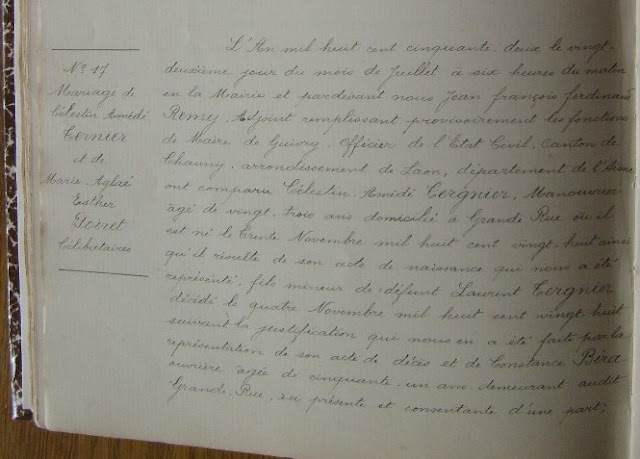 Nº 17
Mariage de
Célestin Amédé
Ternier
et de
Marie-Aglaé
Esther
Célibataires
L'An mil huit cent cinquante-deux le vingt-
deuxième jour du mois de Juillet à six heures du matin
en la Mairie et pardevant nous Jean françois ferdinand
Remy Adjoint remplissant provisoirement les fonctions
de Maire de Guivry. Officier de l'Etat Civil, canton de
Chauny, arrondissement de Laon, département de l'Aisne
ont comparu Célestin-Amédé Tergnier, Manouvrier
âgé de vingt-trois ans domicilié à Grande Rue où il
est né le trente Novembre mil huit cent vingt-huit ainsi
qu'il résulte de son acte de naissance qui nous a été
représenté, fils mineur de défunt Laurent Tergnier
décédé le quatre Novembre mil huit cent vingt-huit
suivant la justification que nous en a été faite par la
représentation de son acte de décès et de Constance
ouvrière âgée de cinquante-un ans demeurant audit
Grande-Rue, ici présente et consentante d'une part;